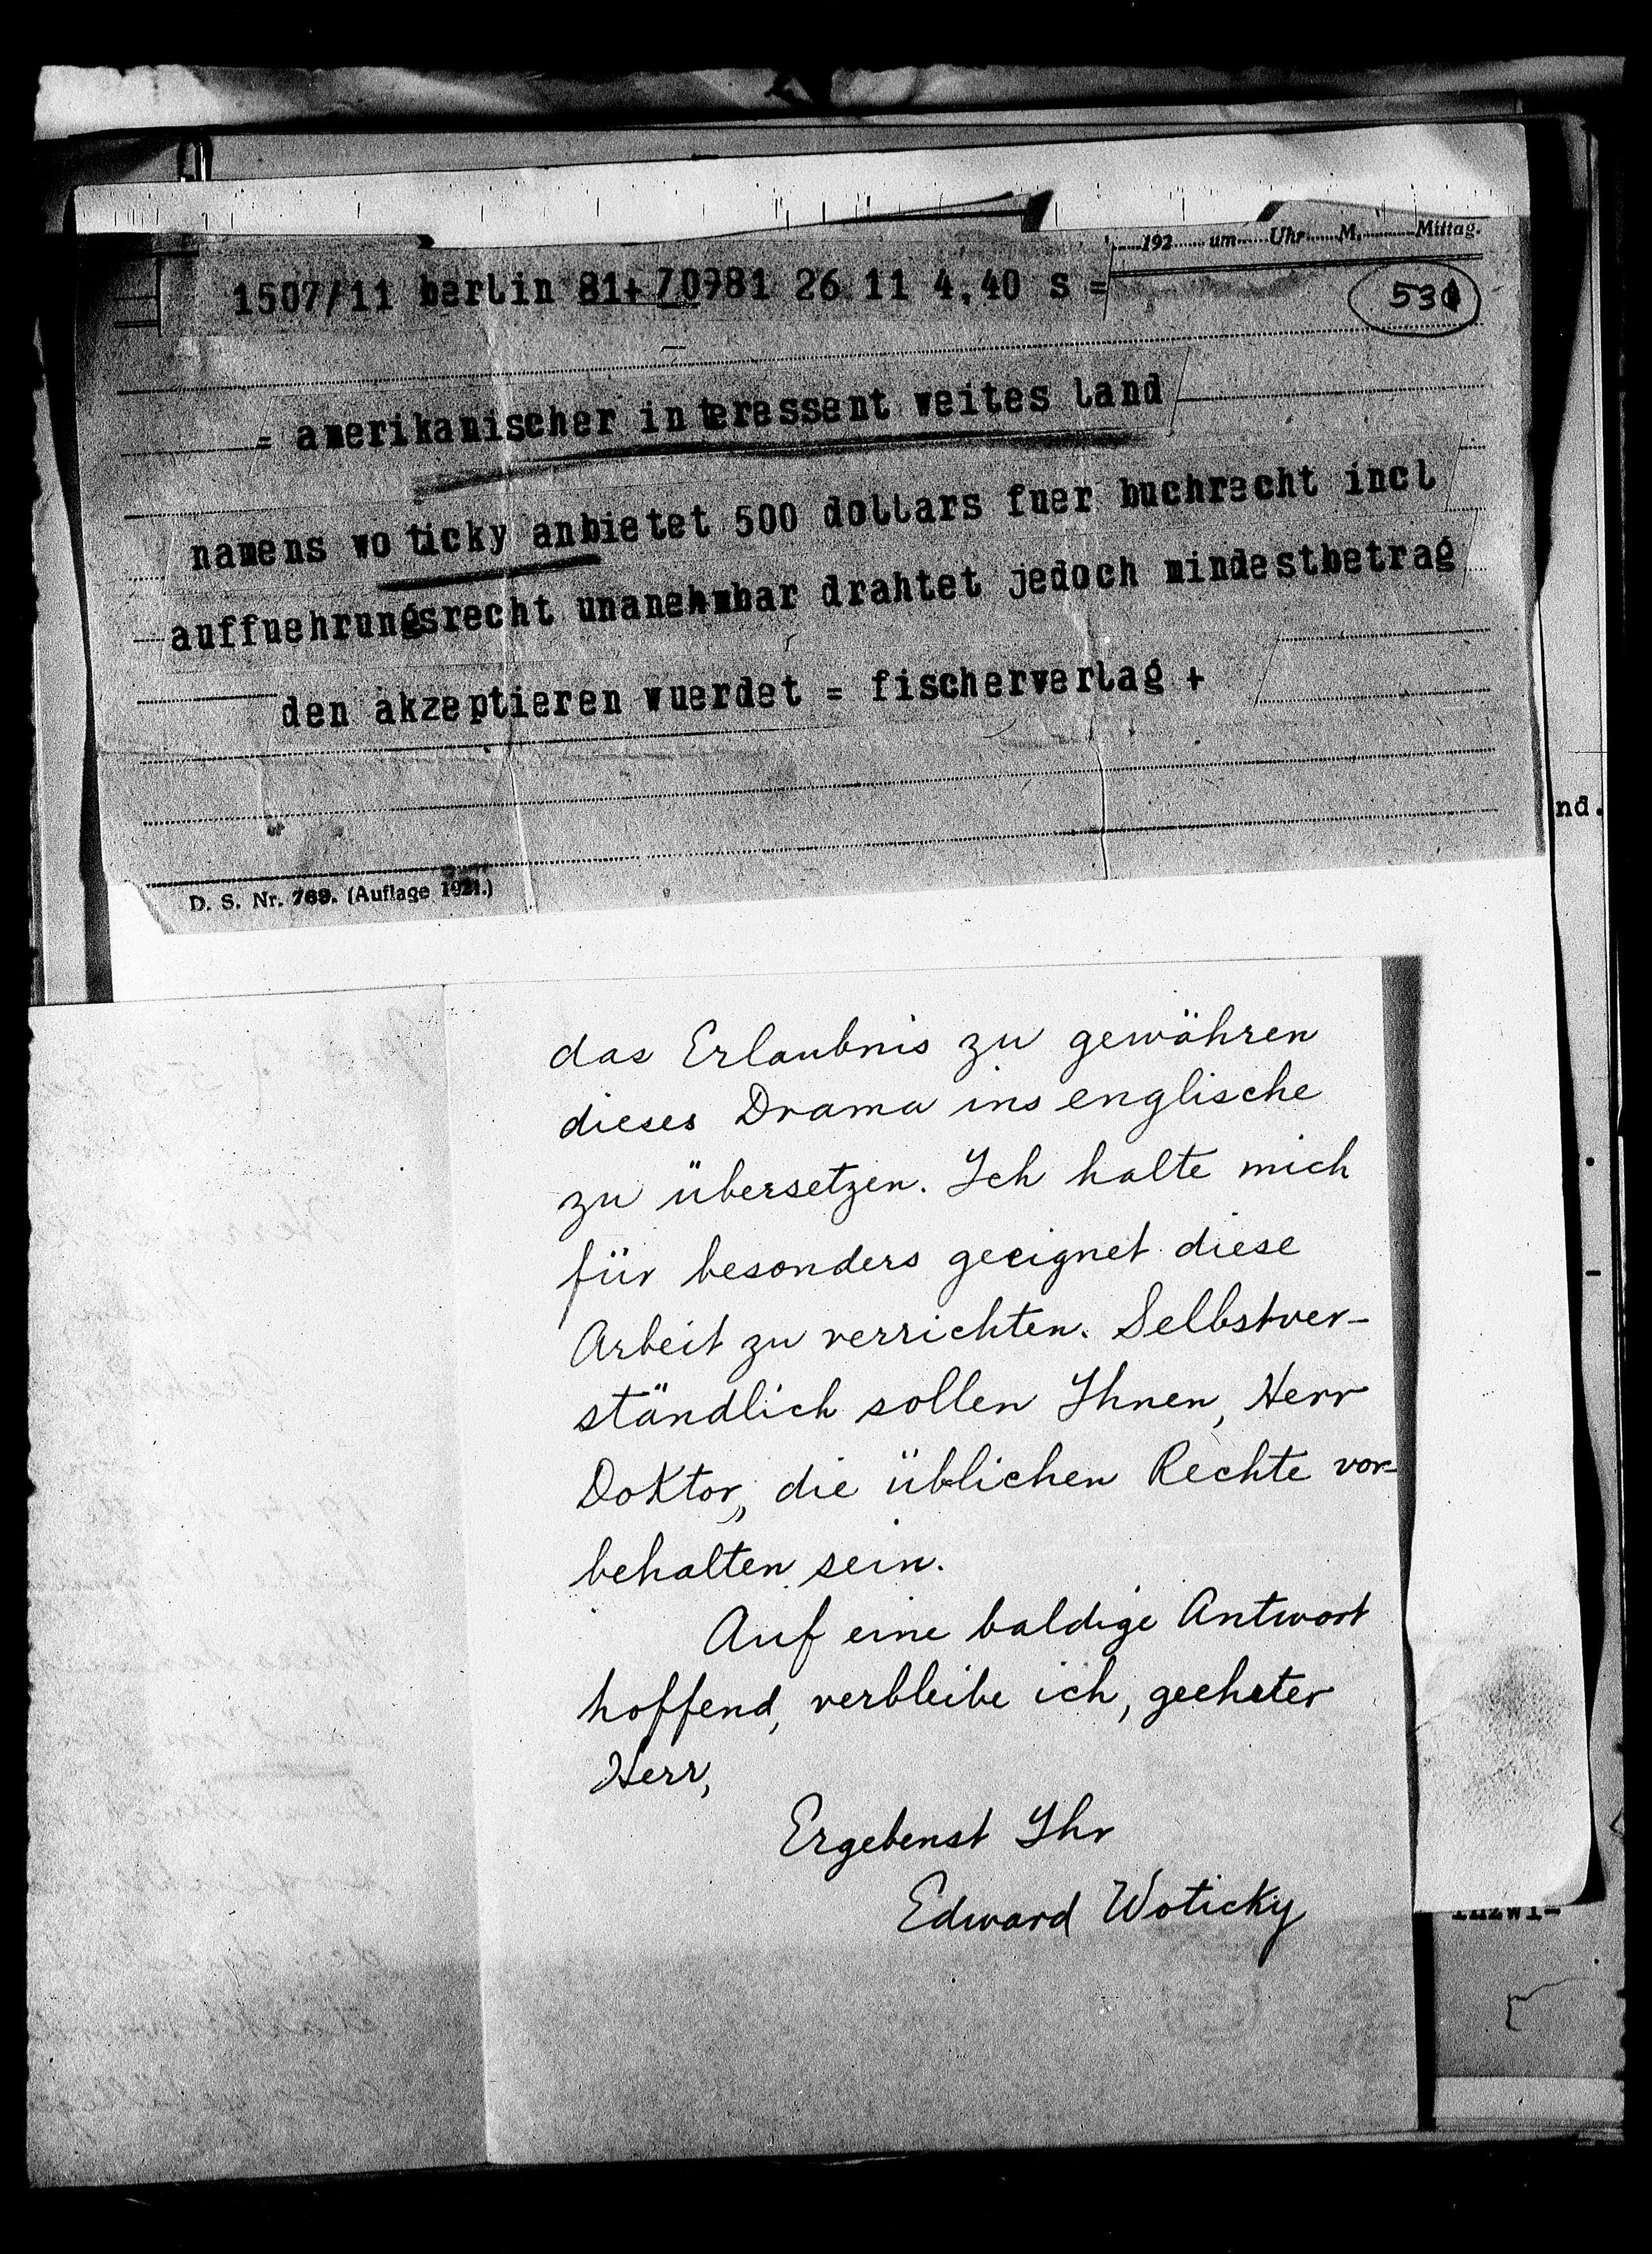 192 um Uhr M. Mittag.
1507/11 berlin 81+70981 26 11 4,40 s =
= amerikanischer interessent weites land
namens woticky anbietet 500 dollars fuer buchrecht incl
auffuehrungsrecht unanehmbar drahtet jedoch mindestbetrag
den akzeptieren wuerdet = fischerverlag +
D. S. Nr. 769. (Auflage 1921.)
nd.
das Erlaubnis zu gewähren
dieses Drama ins englische
zu übersetzen. Ich halte mich
für besonders geeignet diese
Arbeit zu verrichten. Selbstver-
ständlich sollen Ihnen, Herr
Doktor, die üblichen Rechte vor-
behalten sein.
Auf eine baldige Antwort
hoffend, verbleibe ich, geehrter
Herr,
Ergebenst Ihr
Edward Woticky